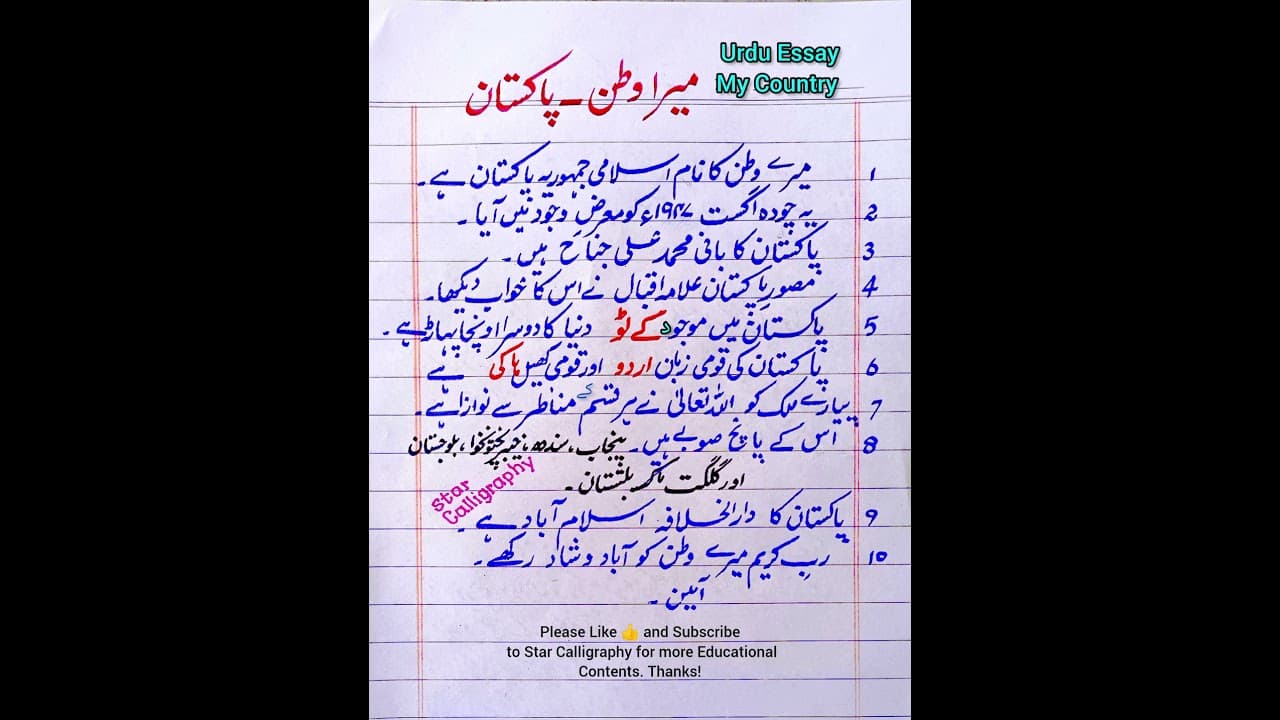 Urdu Essay
My Country
میرا وطن - پاکستان
1 میرے وطن کا نام اسلامی جمہوریہ پاکستان ہے۔
2 یہ چودہ اگست ۱۹۴۷ء کو معرضِ وجود میں آیا۔
3 پاکستان کا بانی محمد علی جناح ہیں۔
4 مصورِ پاکستان علامہ اقبال نے اس کا خواب دیکھا۔
5 پاکستان میں موجود کے ٹو دنیا کا دوسرا اونچا پہاڑ ہے۔
6 پاکستان کی قومی زبان اردو اور قومی کھیل ہاکی ہے
7 پیارے ملک کو اللہ تعالیٰ نے ہر قسم کے مناظر سے نوازا ہے۔
8 اس کے پانچ صوبے ہیں۔ پنجاب، سندھ، خیبر پختونخوا، بلوچستان
اور گلگت بلتستان۔
Star
Calligraphy
9 پاکستان کا دارالخلافہ اسلام آباد ہے۔
10 ربِ کریم میرے وطن کو آباد و شاد رکھے۔
آمین۔
Please Like 👍 and Subscribe
to Star Calligraphy for more Educational
Contents. Thanks!